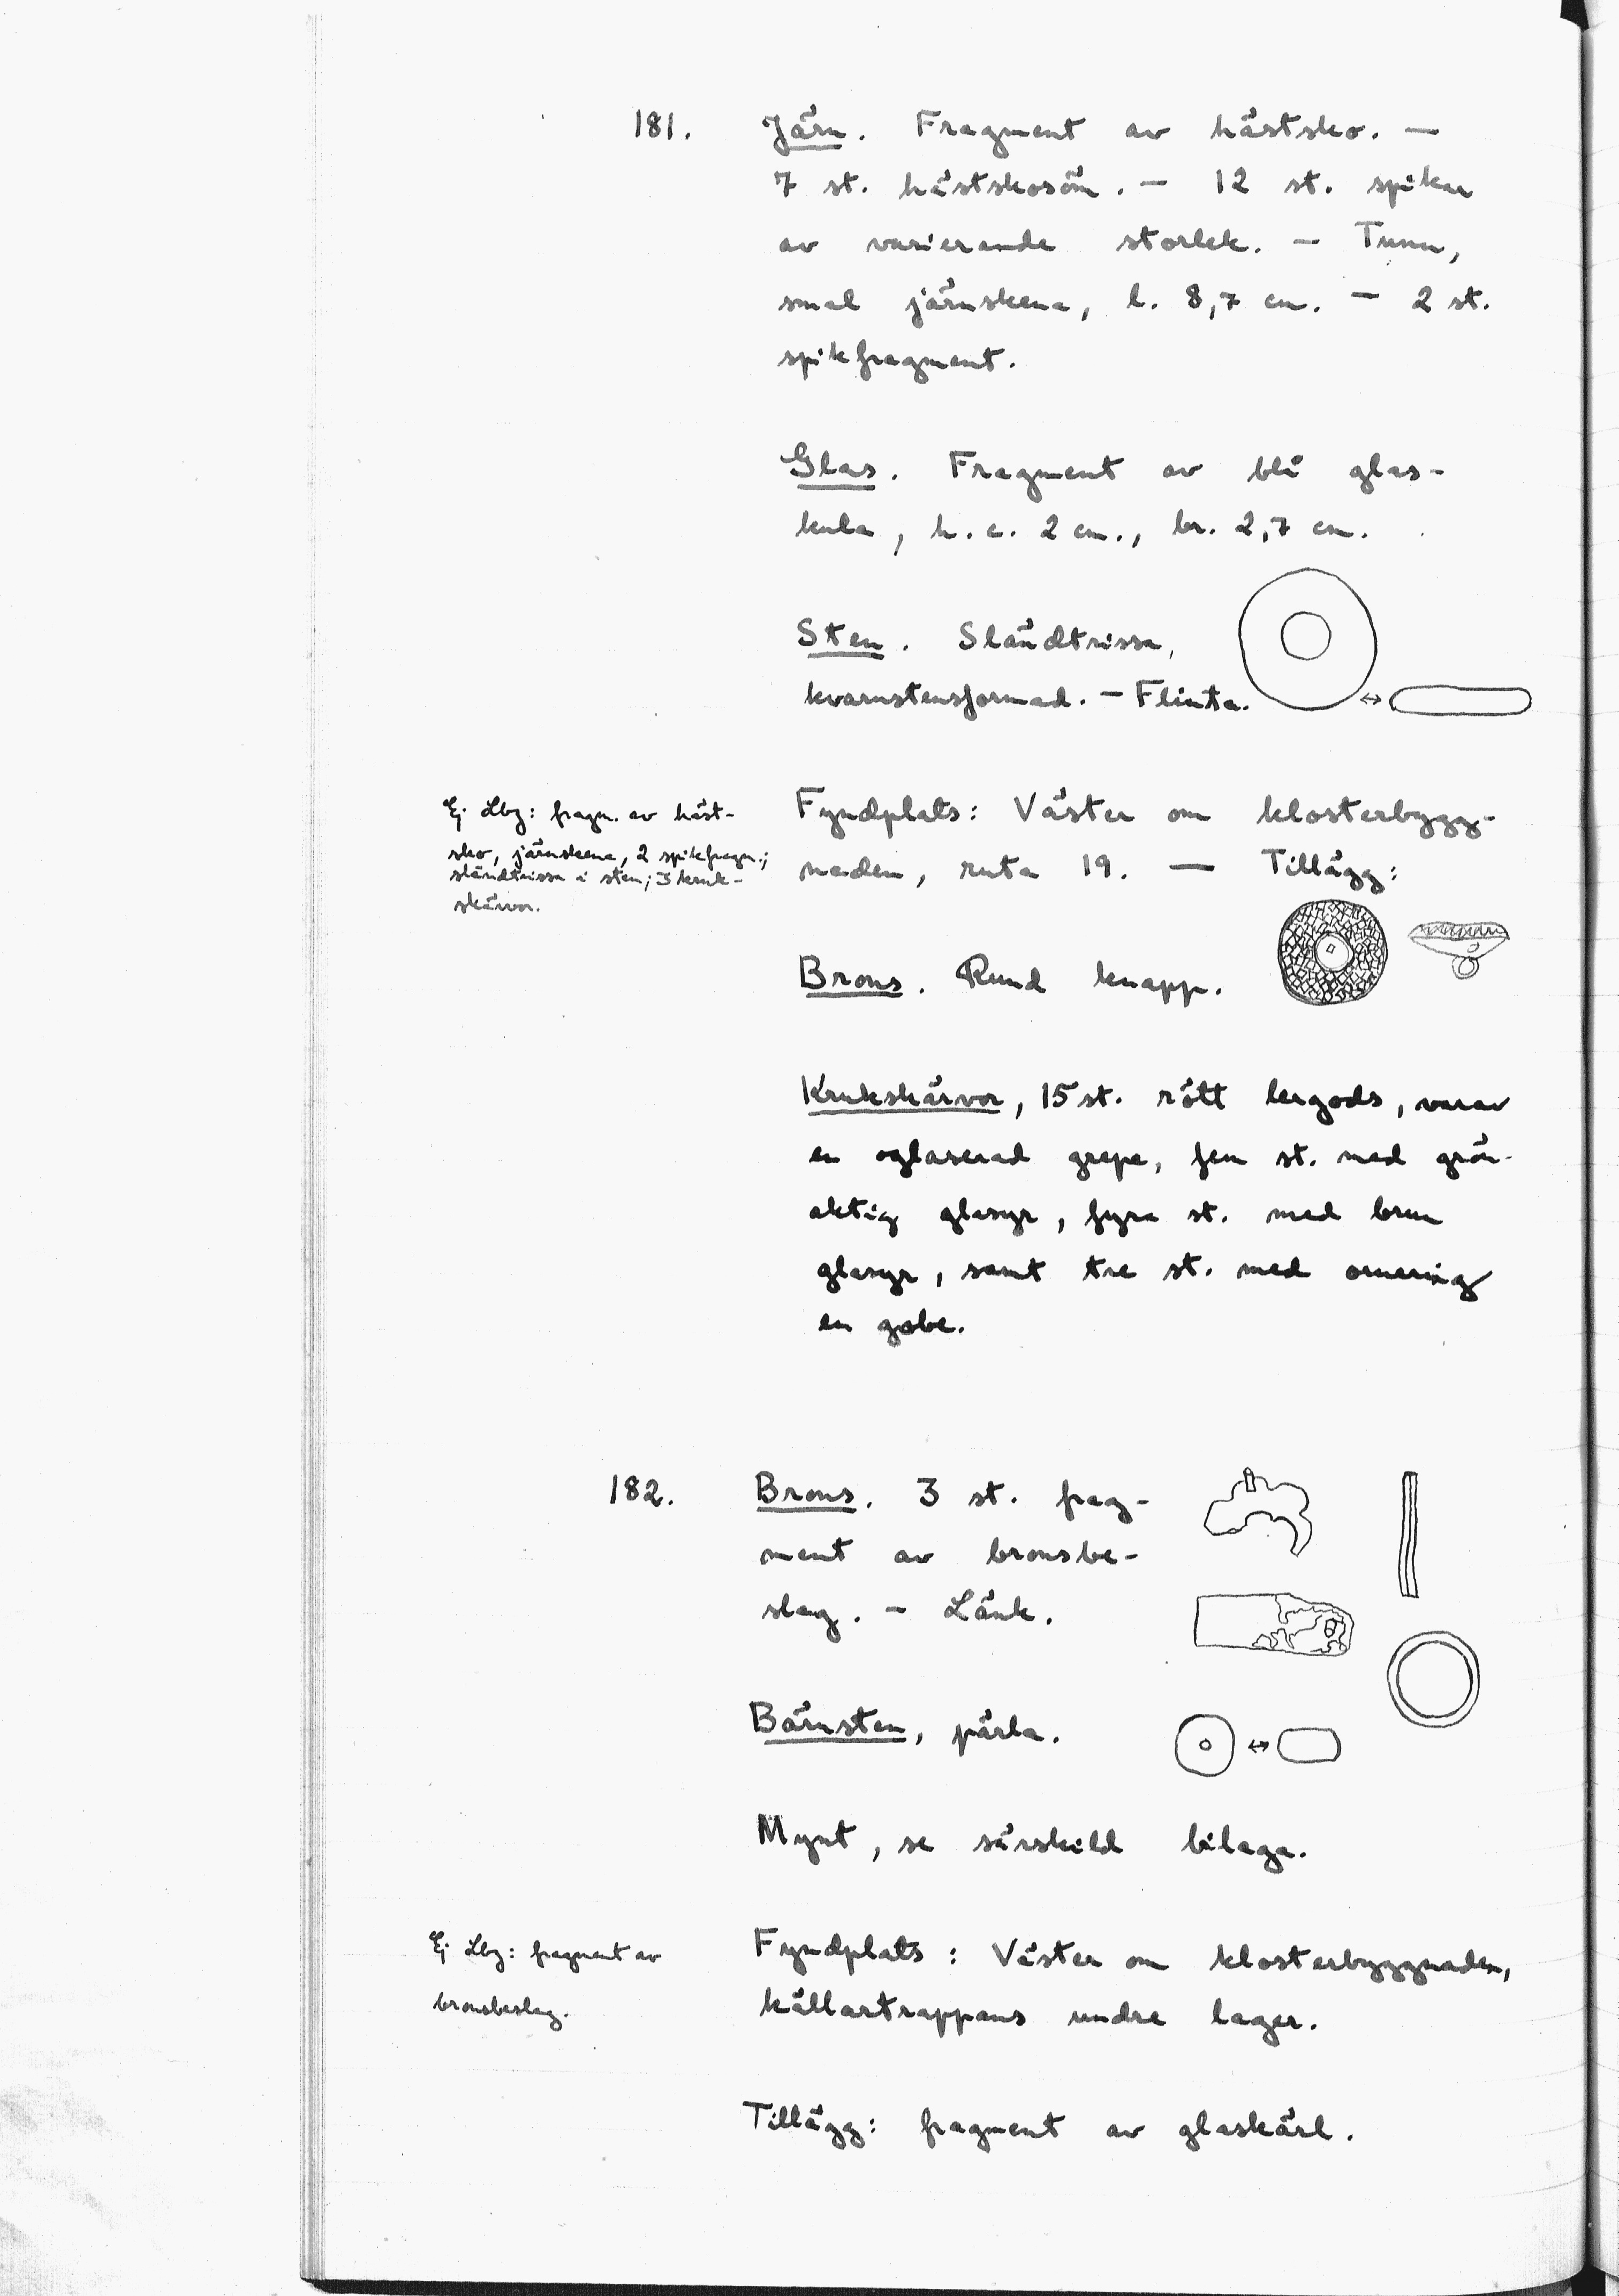 181. Järn. Fragment av hästsko. —
7 st. hästskosöm. — 12 st. spikar
av varierande storlek. — Tunn,
smal järnskena, l. 8,7 cm. — 2 st.
spikfragment.
Glas. Fragment av blå glas-
kula, h. c. 2 cm., br. 2,7 cm.
Sten. Sländtrissa,
kvarnstensformad. — Flinta.
Fyndplats: Väster om klosterbygg-
naden, ruta 19. — Tillägg:
Ej Lbg: fragm. av häst-
sko, järnskena, 2 spikfragm.;
sländtrissa i sten; 3 kruk-
skärvor.
Brons. Rund knapp.
Krukskärvor, 15 st. rött lergods, varav
en oglaserad grepe, fem st. med grön-
aktig glasyr, fyra st. med brun
glasyr, samt tre st. med ornering
en gobe.
182. Brons. 3 st. frag-
ment av bronsbe-
slag. — Länk.
Bärnsten, pärla.
Mynt, se särskild bilaga.
Fyndplats: Väster om klosterbyggnaden,
källartrappans undre lager.
Ej Lbg: fragment av
bronsbeslag.
Tillägg: fragment av glaskärl.